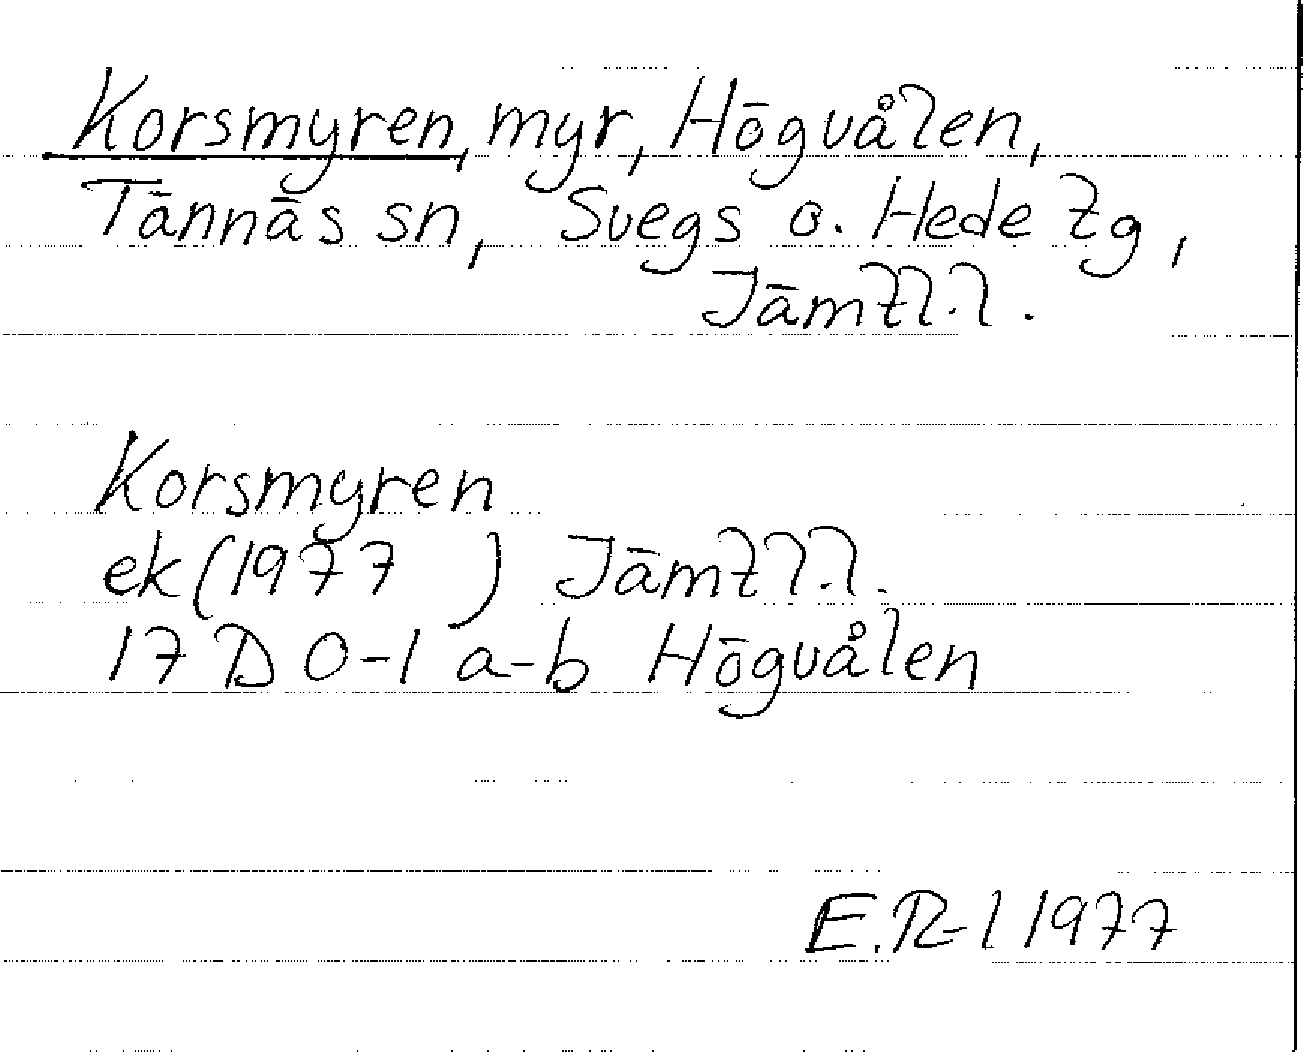 Korsmyren, myr, Högvålen,
Tännäs sn, Svegs o. Hede tg,
Jämtl.l.
Korsmyren
ek (1977 ) Jämtl.l.
17 D 0-1 a-b Högvålen
E.R-l 1977